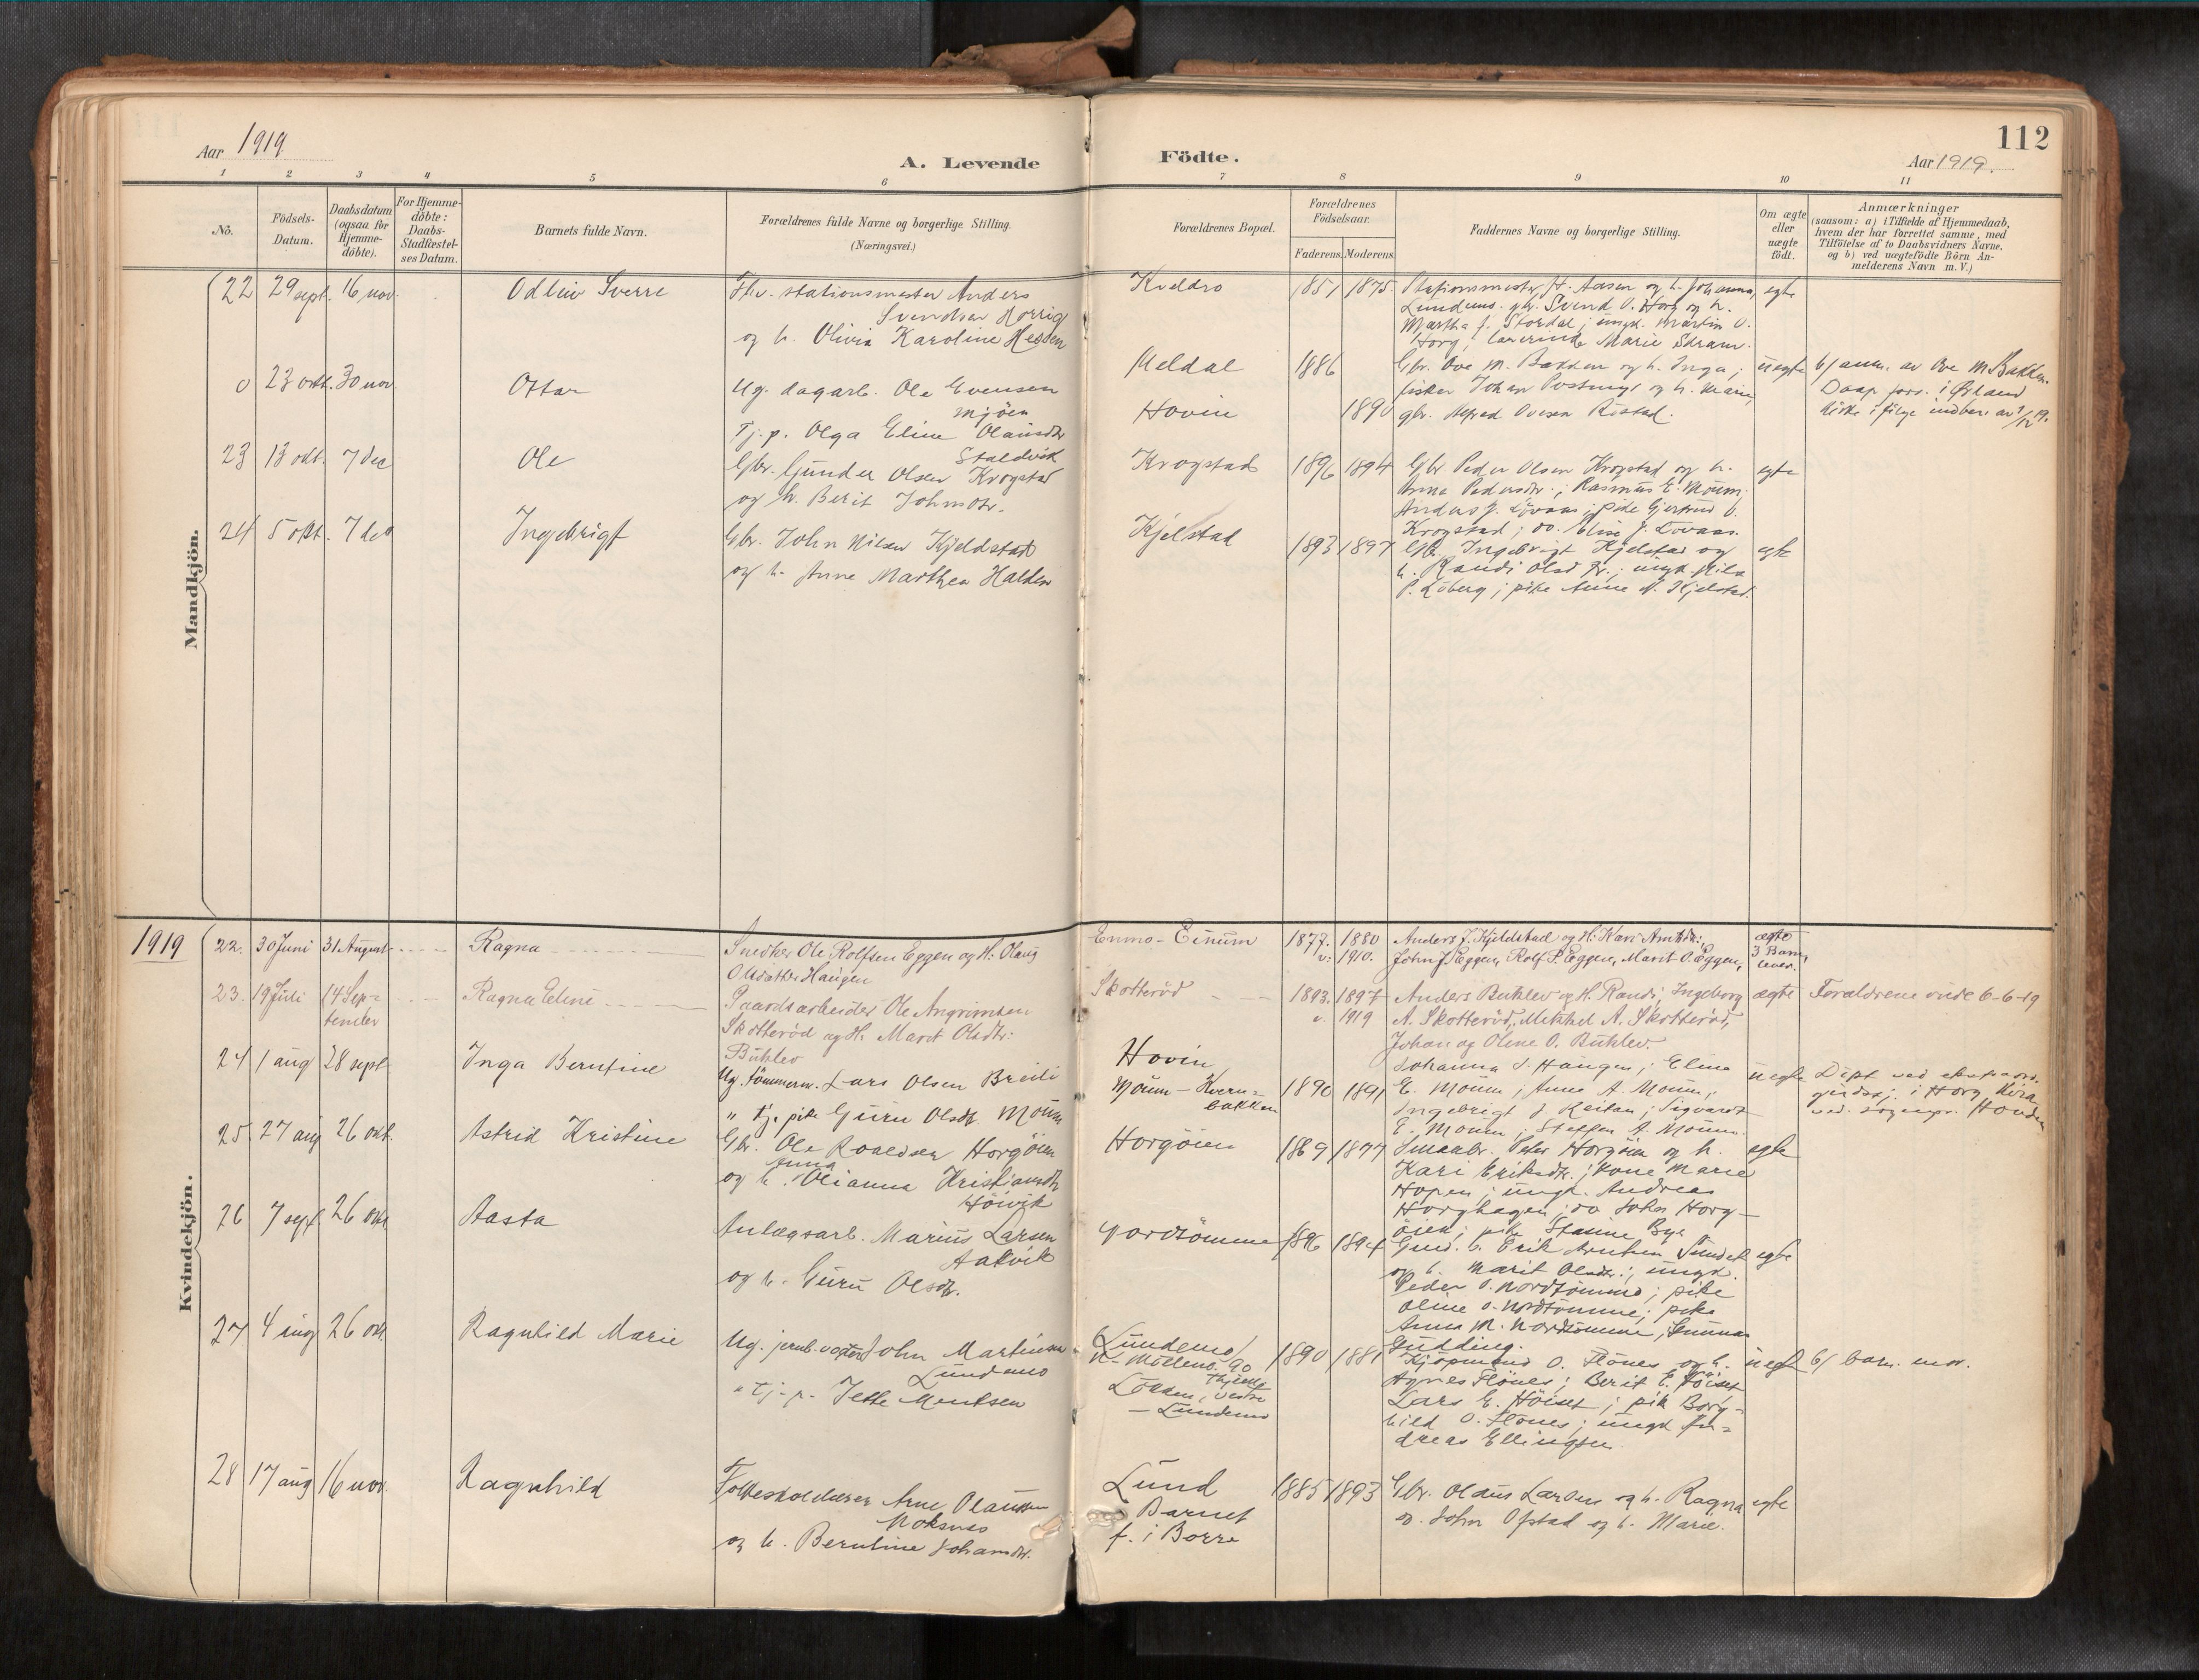 112
Aar 1919
A. Levende Födte.
Aar 1919.
1 2 3 4 5 6 7 8 9 10 11
No.
Födsels-
Datum.
Daabsdatum
(ogsaa for
Hjemme-
döbte).
For Hjemme-
döbte:
Daabs-
Stadfæstel-
ses Datum.
Barnets fulde Navn.
Forældrenes fulde Navne og borgerlige Stilling.
(Næringsvei.)
Forældrenes Bopæl.
Forældrenes
Födselsaar.
Faderens. Moderens.
Faddernes Navne og borgerlige Stilling.
Om ægte
eller
uægte
födt.
Anmærkninger
(saasom: a) i Tilfælde af Hjemmedaab,
hvem der har forrettet samme, med
Tilföielse af to Daabsvidners Navne,
og b) ved uægtefödte Börn An-
melderens Navn m. V.)
Mandkjön.
22 29 sept. 16 nov. Odleiv Sverre
Fhv. stationsmester Anders
Svendsen Horrig
og h. Olivia Karoline
Kveldro
1851 1875
Stationsmester H. Aasen og h. Johanna,
Lundemo. gbr. Svend O. Horg og h.
Martha f. Stordal; ungk. Martin O.
Horg; lærerinde Marie Skram.
egte
0 23 okt. 30 nov. Ottar
Ug. dagarb. Ole Evensen
Mjöen
Tj.p. Olga Eline Olausdtr
Staldvik
Meldal
Hovin
1886
1890
Gbr. Ove M. Bakken og h. Inga;
fisker Johan og h. Marie,
gbr. Alfred Ovesen
uegte
b/ anm. av Ove M. Bakken.
Daap forr. i Ørland
kirke ifölge indber. av
23 13 okt. 7 dec Ole
Gbr. Gunder Olsen Krogstad
og h. Berit Johnsdtr.
Krogstad
1896 1894
Gbr Peder Olsen Krogstad og h.
Anne Pedersdtr.; Rasmus E. Moum;
Anders J. Lövaas; pike Gjertrud O.
Krogstad; do. Elise J. Lövaas.
egte
24 5 okt. 7 dec Ingebrigt
Gbr. John Nilsen Kjeldstad
og h. Anne Marthea Halden
Kjelstad
1893 1897
Gbr. Ingebrigt Kjelstad og
h. Randi Olsdtr.; ungk. Nils
P. Löberg; pike Anne N. Kjelstad.
egte
Kvindekjön.
1919 22. 30 Juni 31. August Ragna
Snedker Ole Rolfsen Eggen og H: Olaug
Olsdatter Haugen
Enmo-Einum
1877. 1880
v: 1910.
Anders J. Kjeldstad og H: Kari
John J. Eggen, Rolf P. Eggen, Marit O. Eggen,
ægte
3 Barn
lever.
23. 19 Juli 14 Sep=
tember Ragna Eline
Gaardsarbeider Ole Angrimsen
Skotteröd og H: Marit Olsdtr:
Buhlev
Skotteröd
1893. 1897
v. 1919
Anders Buhlev og H. Randi, Ingeborg
A. Skotteröd, Mikkel A. Skotteröd,
Johan og Oline O. Buhlev.
ægte
Forældrene viede 6-6-19
24 1 aug 28 sept Inga Berntine
Ug. tömmerm. Lars Olsen Breili
" tj. pike Guru Olsdtr Moum
Hovin
Moum - Kvern=
bakken
1890 1891
Johanna J. Haugen; Eline
E. Moum; Anne A. Moum;
Ingebrigt J Reitan; Sigvardt
E. Moum; Steffen A. Moum.
uegte
Döpt ved ekstraord.
gudstj. i Horg kirke
ved sogenpr.
25. 27 aug 26 okt. Astrid Kristine
Gbr. Ole Roaldsen Horgöien
Anna
og h. Olianna Kristiansdtr
Höivik
Horgöien
1869 1877
Smaabr. Peter Horgöien og h.
Kari Eriksdtr.; kone Marie
Hopen; ungk. Andreas
Horghagen; do Johs Horg-
öien; pike Stanine Bye
egte
26 7 sept. 26 okt Aasta
Anlægsarb. Marius Larsen
Aakvik
og h. Guru Olsdtr.
Nordtömme
1896 1894
Gmd. br. Erik Arntsen Sundet
og h. Marit Olsdtr.; ungk.
Peder O. Nordtömme; pike
Oline O. Nordtömme; pike
Anna M. Nordtömme; Gunnar
Gudding.
egte
27 4 aug 26 okt. Ragnhild Marie
Ug. jernb.vogter John Martinsen
Lundemo
" tj-p. Jette Mentsen
Lundemo/
Lökken, vestre
- Lundemo
1890 1881
Kjöpmand O. Flönes og h.
Agnes Flönes; Berit E. Höiset
Lars E. Höiset; pik Borg-
hild O. Flönes; ungk An=
dreas Ellingsen
uegte
b/ barn. mor.
28 17 aug 16 nov. Ragnhild
Folkeskolelærer Arne Olaussen
Moksnes
og h. Berntine Johansdtr.
Lund
Barnet
f. i Borre
1885 1893
Gbr. Olaus Larsen og h. Ragna
gb. John Ofstad og h. Marie.
egte